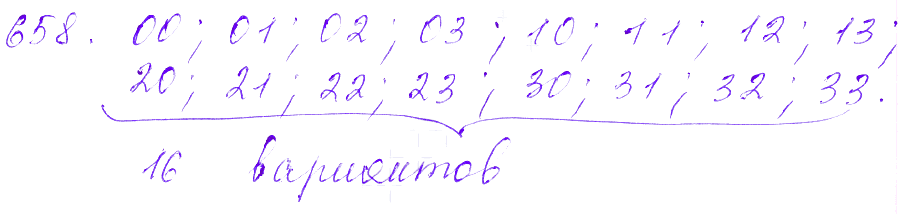 658. 00; 01; 02; 03; 10; 11; 12; 13;
20; 21; 22; 23; 30; 31; 32; 33.
16 вариантов